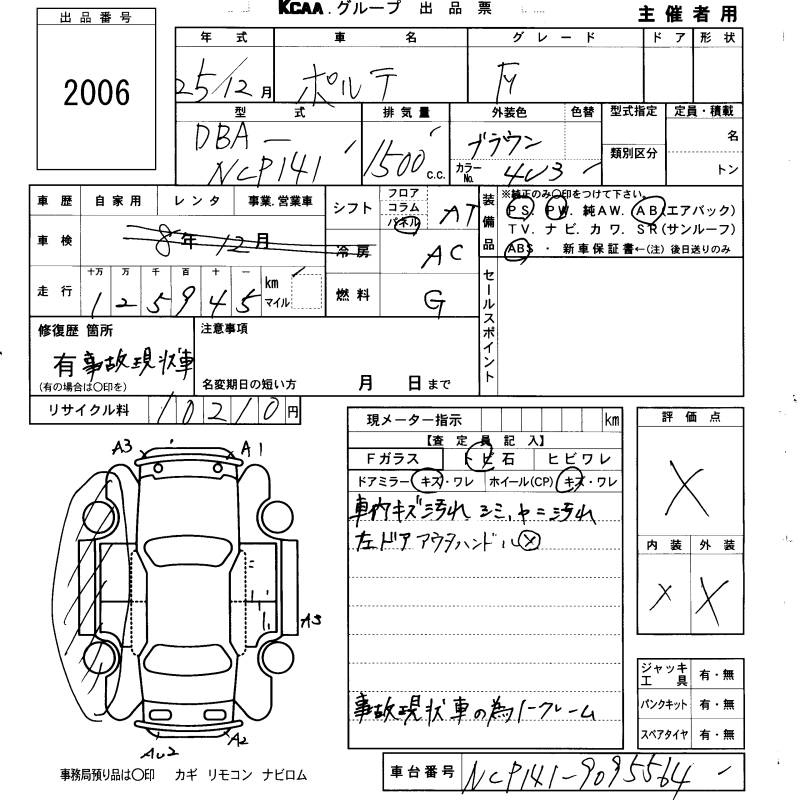 KCAA.グループ 出品票
主催者用
出品番号
2006
年式 車名 グレード ドア 形状
25/12月 ポルテ
型式 排気量 外装色 色替 型式指定 定員・積載
DBA－NCP141 1500c.c. ブラウン カラーNo. 4U3 類別区分 名 トン
車歴 自家用 レンタ 事業.営業車
シフト フロア コラム パネル AT
装備品 ※純正のみ〇印をつけて下さい。
PS. PW. 純AW. AB(エアバック)
TV. ナビ. カワ. SR(サンルーフ)
ABS ・ 新車保証書←(注) 後日送りのみ
車検 8年12月
冷房 AC
走行 十万 万 千 百 十 一 km マイル
125945
燃料 G
セールスポイント
修復歴 箇所
有 事故現状車
(有の場合は〇印を)
注意事項
名変期日の短い方 月 日まで
リサイクル料 10210円
現メーター指示 km
【査定員記入】
Fガラス トビ石 ヒビワレ
ドアミラー キズ・ワレ ホイール(CP) キズ・ワレ
車内キズ汚れ シミ、ヤニ汚れ
左ドアアウタハンドル×
事故現状車の為ノークレーム
評価点
×
内装 外装
× ×
ジャッキ工具 有・無
パンクキット 有・無
スペアタイヤ 有・無
A3 A1
A3
AU2 A2
事務局預り品は〇印 カギ リモコン ナビロム
車台番号 NCP141-9095564